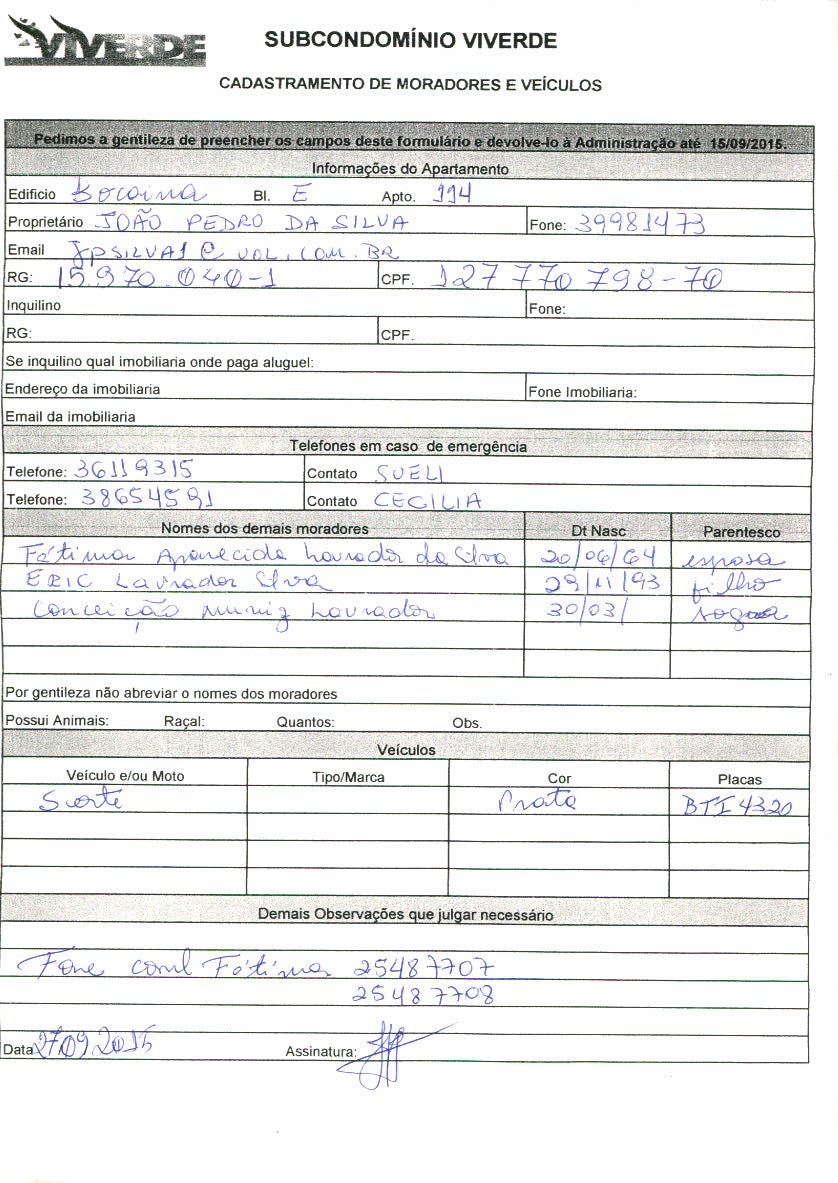 VIVERDE
SUBCONDOMÍNIO VIVERDE
CADASTRAMENTO DE MORADORES E VEÍCULOS
Pedimos a gentileza de preencher os campos deste formulário e devolve-lo à Administração até 15/09/2015.
Informações do Apartamento
Edificio Bocaina Bl. E Apto. 194
Proprietário JOÃO PEDRO DA SILVA Fone: 39981473
Email JPSILVA1@UOL.COM.BR
RG: 15970.040-1 CPF. 127 770 798-70
Inquilino Fone:
RG: CPF.
Se inquilino qual imobiliaria onde paga aluguel:
Endereço da imobiliaria Fone Imobiliaria:
Email da imobiliaria
Telefones em caso de emergência
Telefone: 36119315 Contato SUELI
Telefone: 38654591 Contato CECILIA
Nomes dos demais moradores Dt Nasc Parentesco
Fátima Aparecida Lavrador da Silva 20/06/64 esposa
ERIC Lavrador Silva 29/11/93 filho
Conceição Muniz Lavrador 30/03/ sogra
Por gentileza não abreviar o nomes dos moradores
Possui Animais: Raçal: Quantos: Obs.
Veículos
Veículo e/ou Moto Tipo/Marca Cor Placas
Prata BTI 4320
Demais Observações que julgar necessário
Fone coml Fátima 25487707
25487708
Data 27092015 Assinatura: